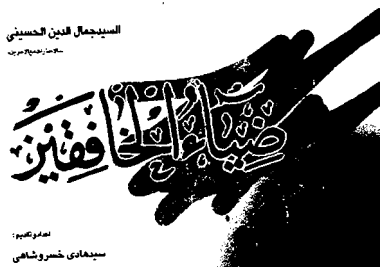 السيد جمال الدين الحسيني
ضياء الخافقين
اعداد و تقديم:
سيد هادي خسروشاهي